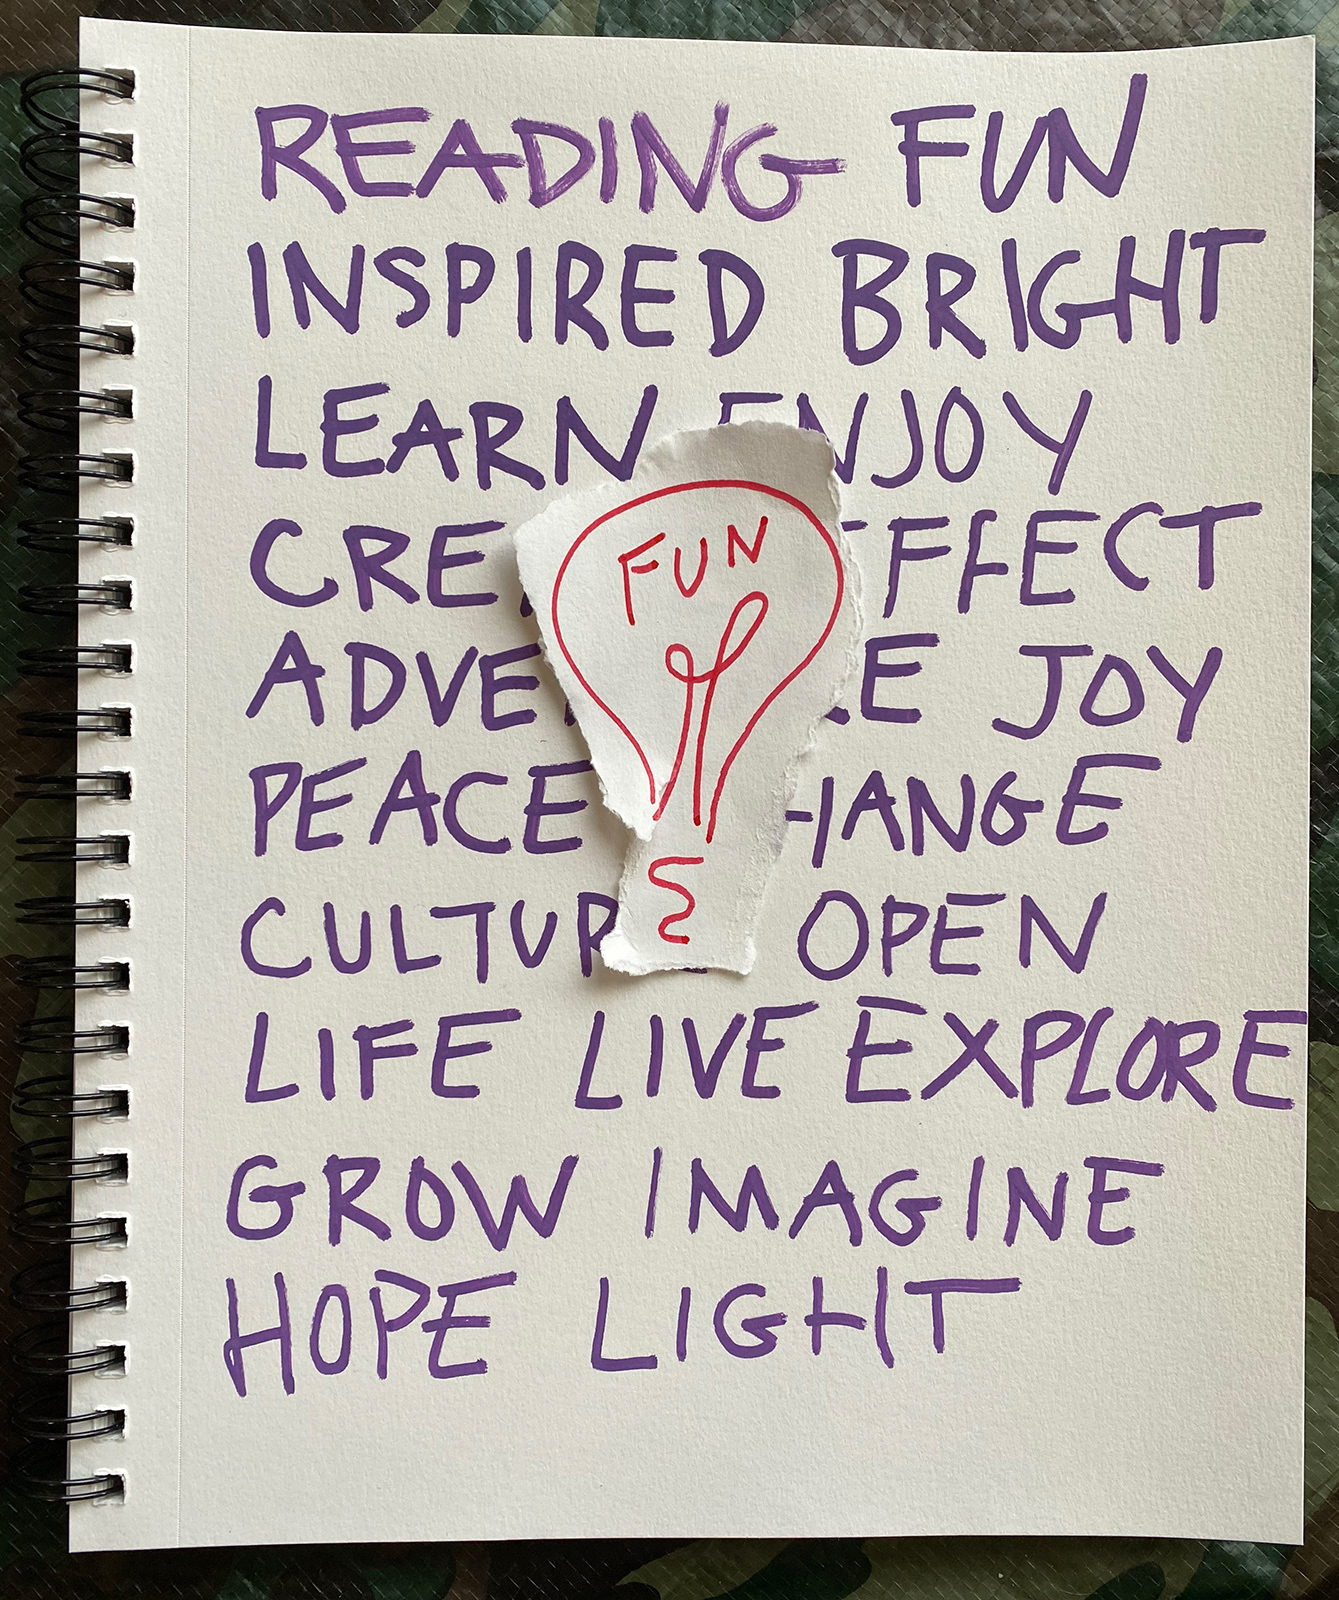 READING FUN
INSPIRED BRIGHT
LEARN ENJOY
EFFECT
ADVENTURE JOY
PEACE CHANGE
CULTURE OPEN
LIFE LIVE EXPLORE
GROW IMAGINE
HOPE LIGHT
FUN